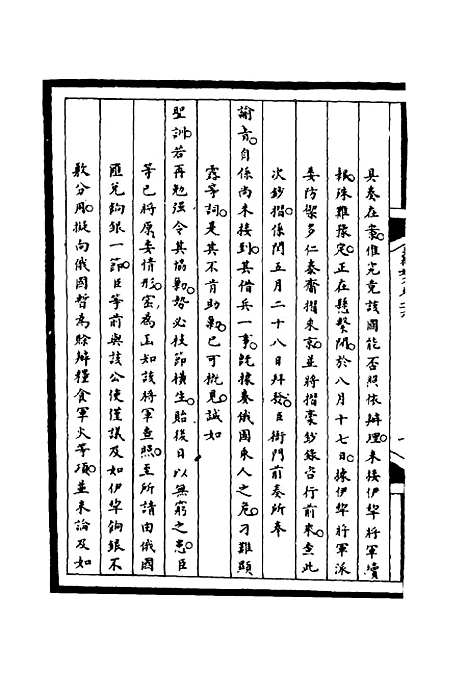 具奏在案惟究竟該國能否照依辦理未接伊犂將軍續
報殊難豫定正在懸繫間於八月十七日據伊犂將軍派
委防禦多仁泰齎摺來京並將摺稾鈔錄咨行前來查此
次鈔摺係閏五月二十八日拜發臣衙門前奏所奉
諭旨自係尚未接到其借兵一事旣據奏俄國乘人之危刁難顯
露等詞是其不肯助勦已可槪見誠如
聖訓若再勉强令其協勦勢必枝節橫生貽後日以無窮之患臣
等已將原委情形密爲函知該將軍查照至所請由俄國
匯兌餉銀一節臣等前與該公使僅議及如伊犂餉銀不
敷分用擬向俄國暫爲賒辦糧食軍火等項並未論及如